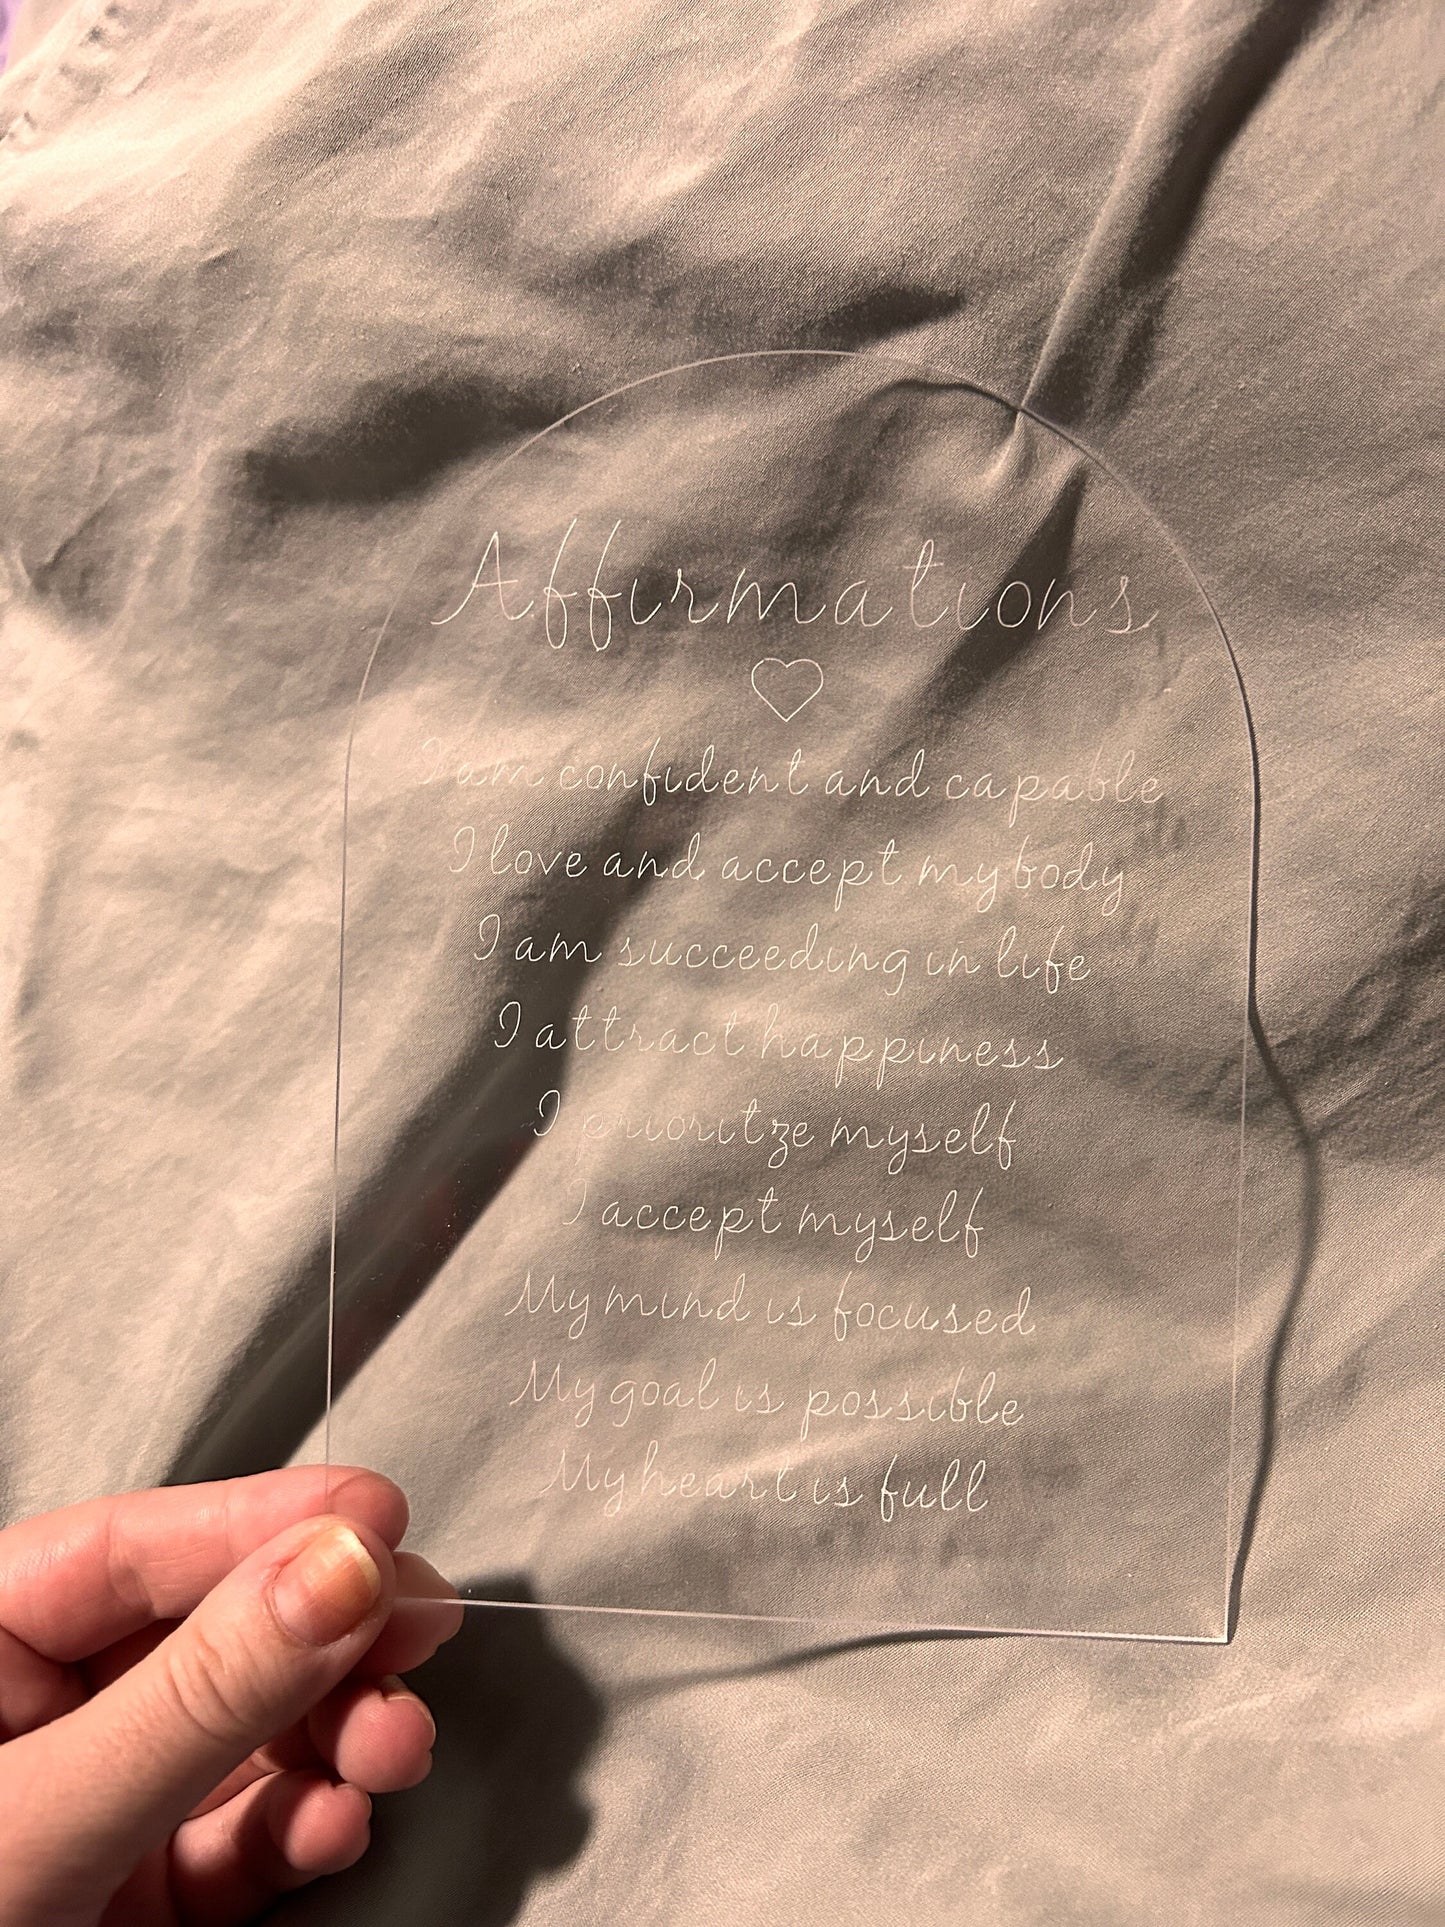 Affirmations
I am confident and capable
I love and accept my body
I am succeeding in life
I attract happiness
I prioritze myself
I accept myself
My mind is focused
My goal is possible
My heart is full